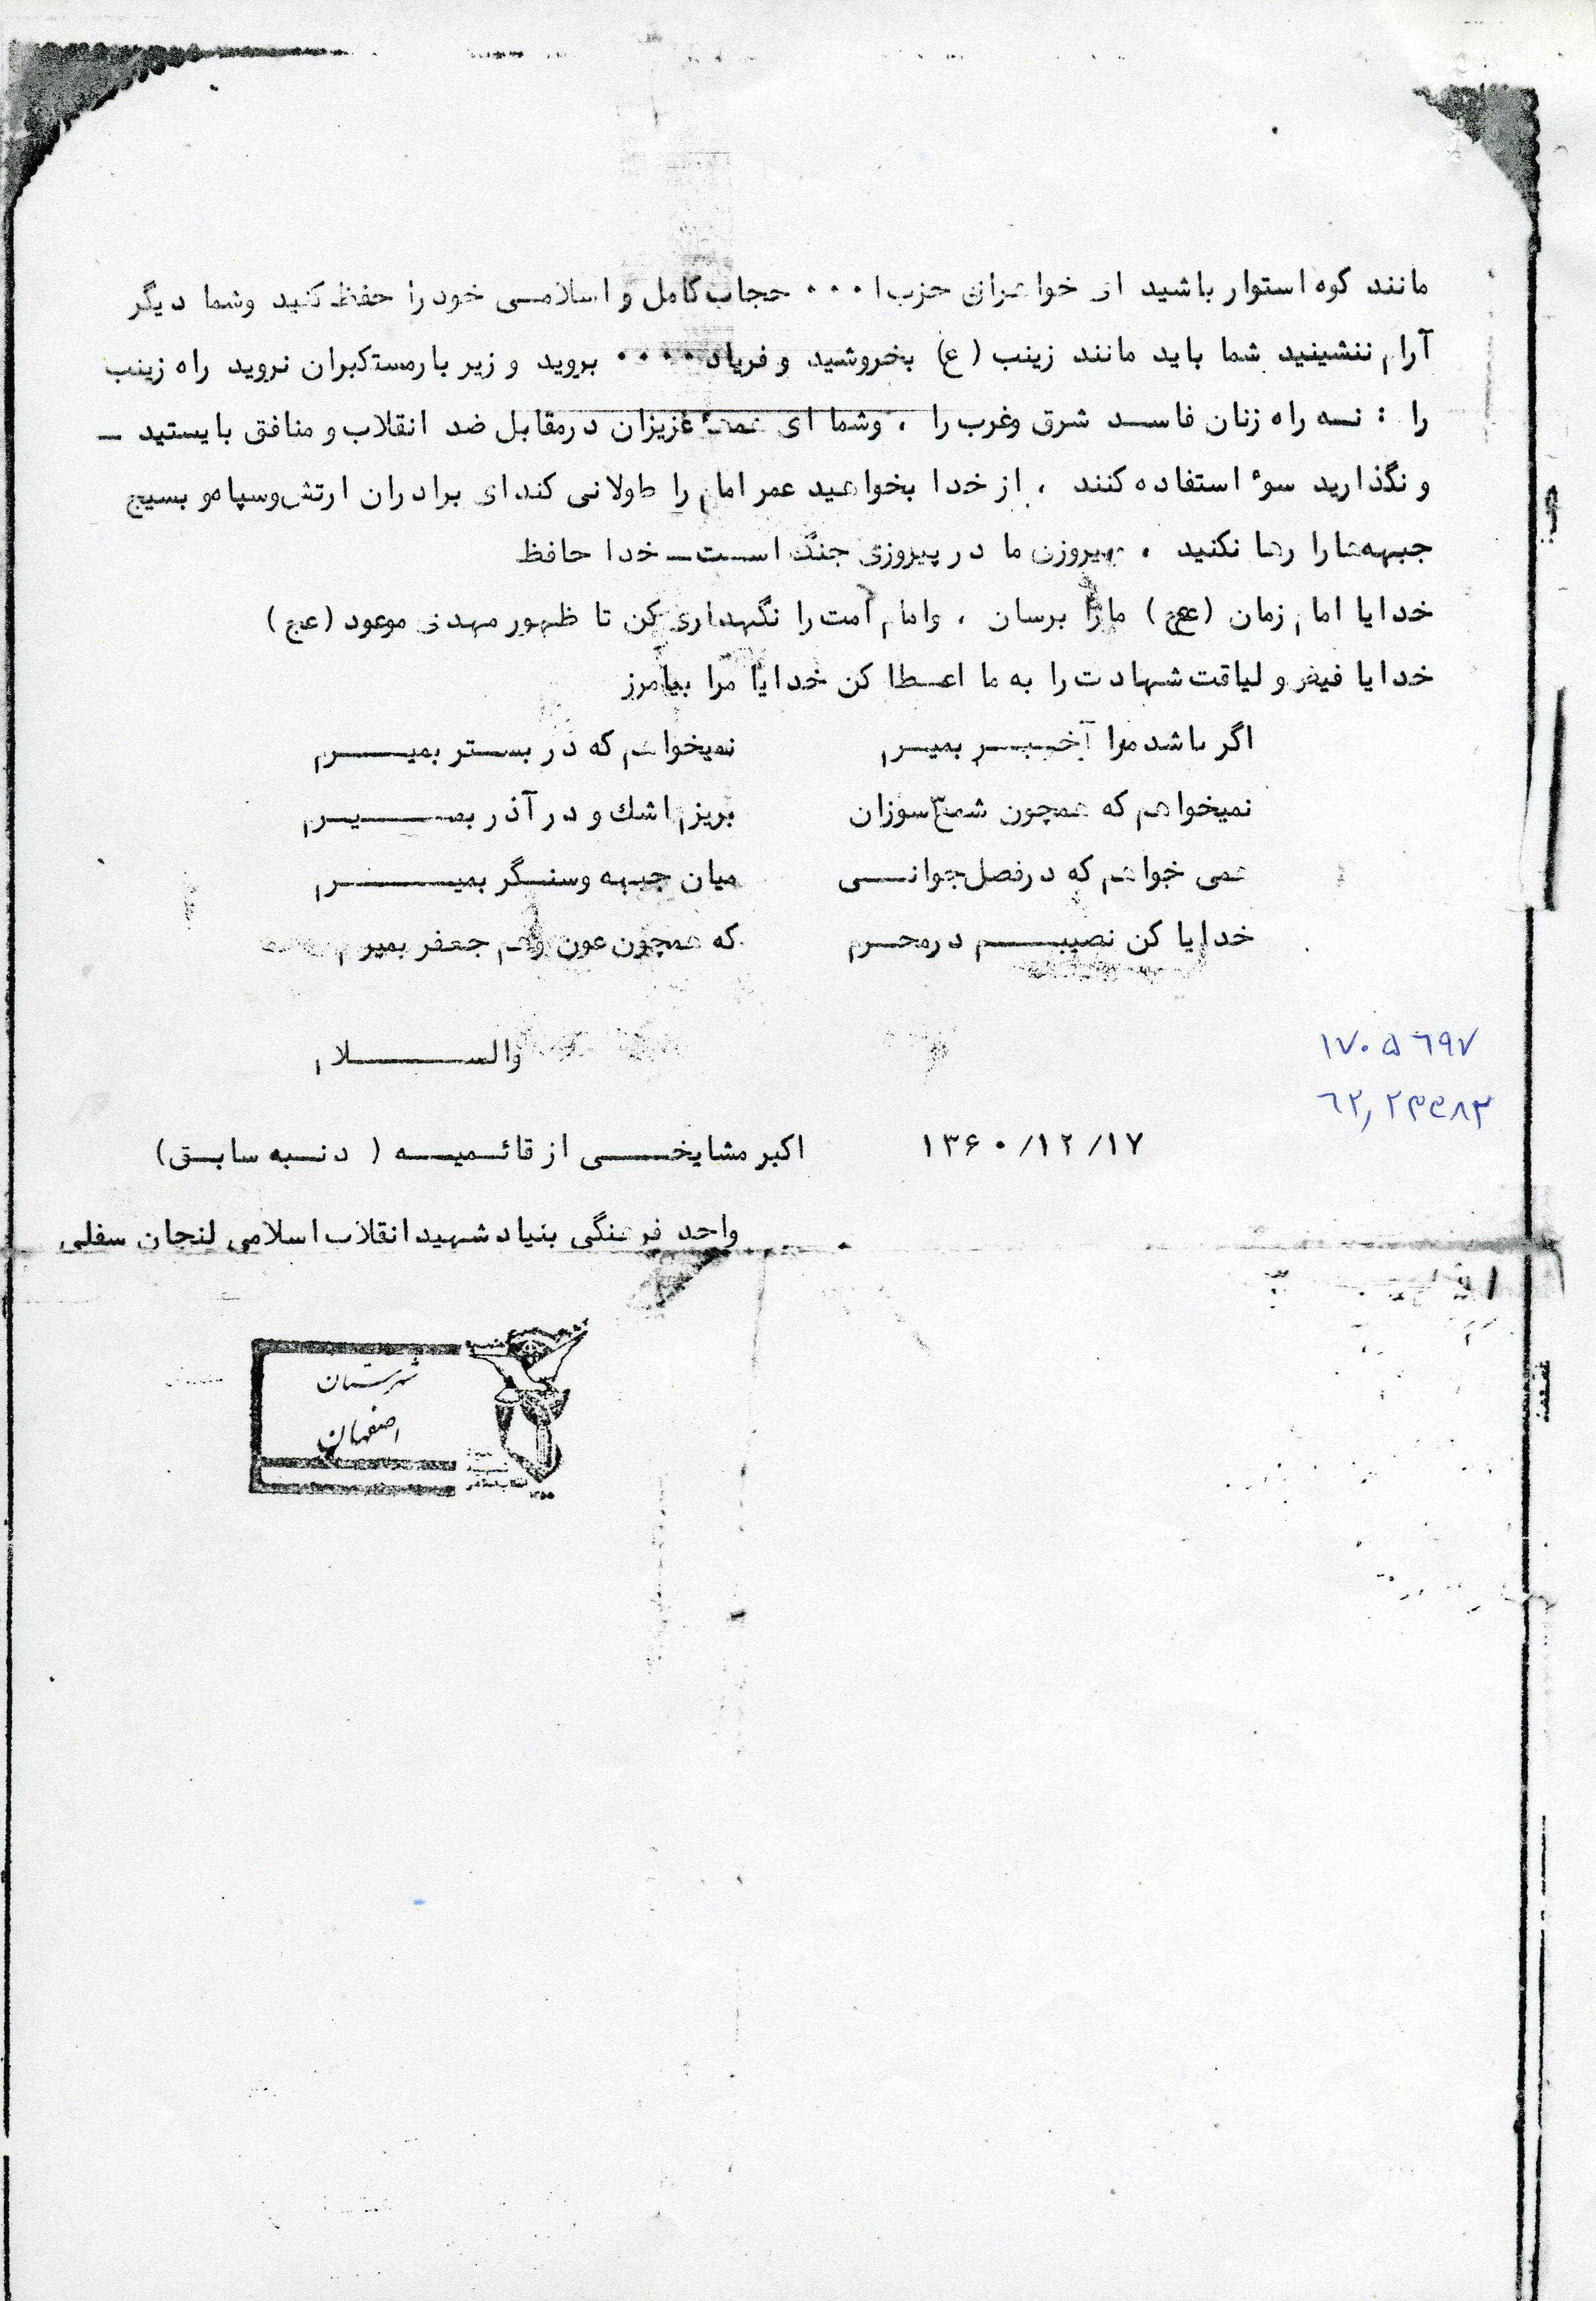 مانند کوه استوار باشید ای خواهران حزب ا... حجاب کامل و اسلامی خود را حفظ کنید وشما دیگر
آرام ننشینید شما باید مانند زینب (ع) بخروشید و فریاد .... بروید و زیر بار مستکبران نروید راه زینب
را : نه راه زنان فاسد شرق وغرب را ، وشما ای همه عزیزان درمقابل ضد انقلاب و منافق بایستید ـ
و نگذارید سوء استفاده کنند ، از خدا بخواهید عمر امام را طولانی کند ای برادران ارتش وسپاه و بسیج
جبهه‌ها را رها نکنید ، پیروزی ما در پیروزی جنگ است ـ خدا حافظ
خدایا امام زمان (عج) ما را برسان ، وامام امت را نگهداری کن تا ظهور مهدی موعود (عج)
خدایا فیض و لیاقت شهادت را به ما اعطا کن خدایا مرا بیامرز
اگر باشد مرا آخر بمیرم نمیخواهم که در بستر بمیرم
نمیخواهم که همچون شمع سوزان بریزم اشک و در آذر بمیرم
همی خواهم که درفصل جوانی میان جبهه وسنگر بمیرم
خدایا کن نصیبم درمحرم که همچون عون وهم جعفر بمیرم
والسلام
۱۷۰۵۶۹۷
۱۳۶۰/۱۲/۱۷ اکبر مشایخی از قائمیه ( دنبه سابق)
واحد فرهنگی بنیاد شهید انقلاب اسلامی لنجان سفلی
شهرستان
اصفهان